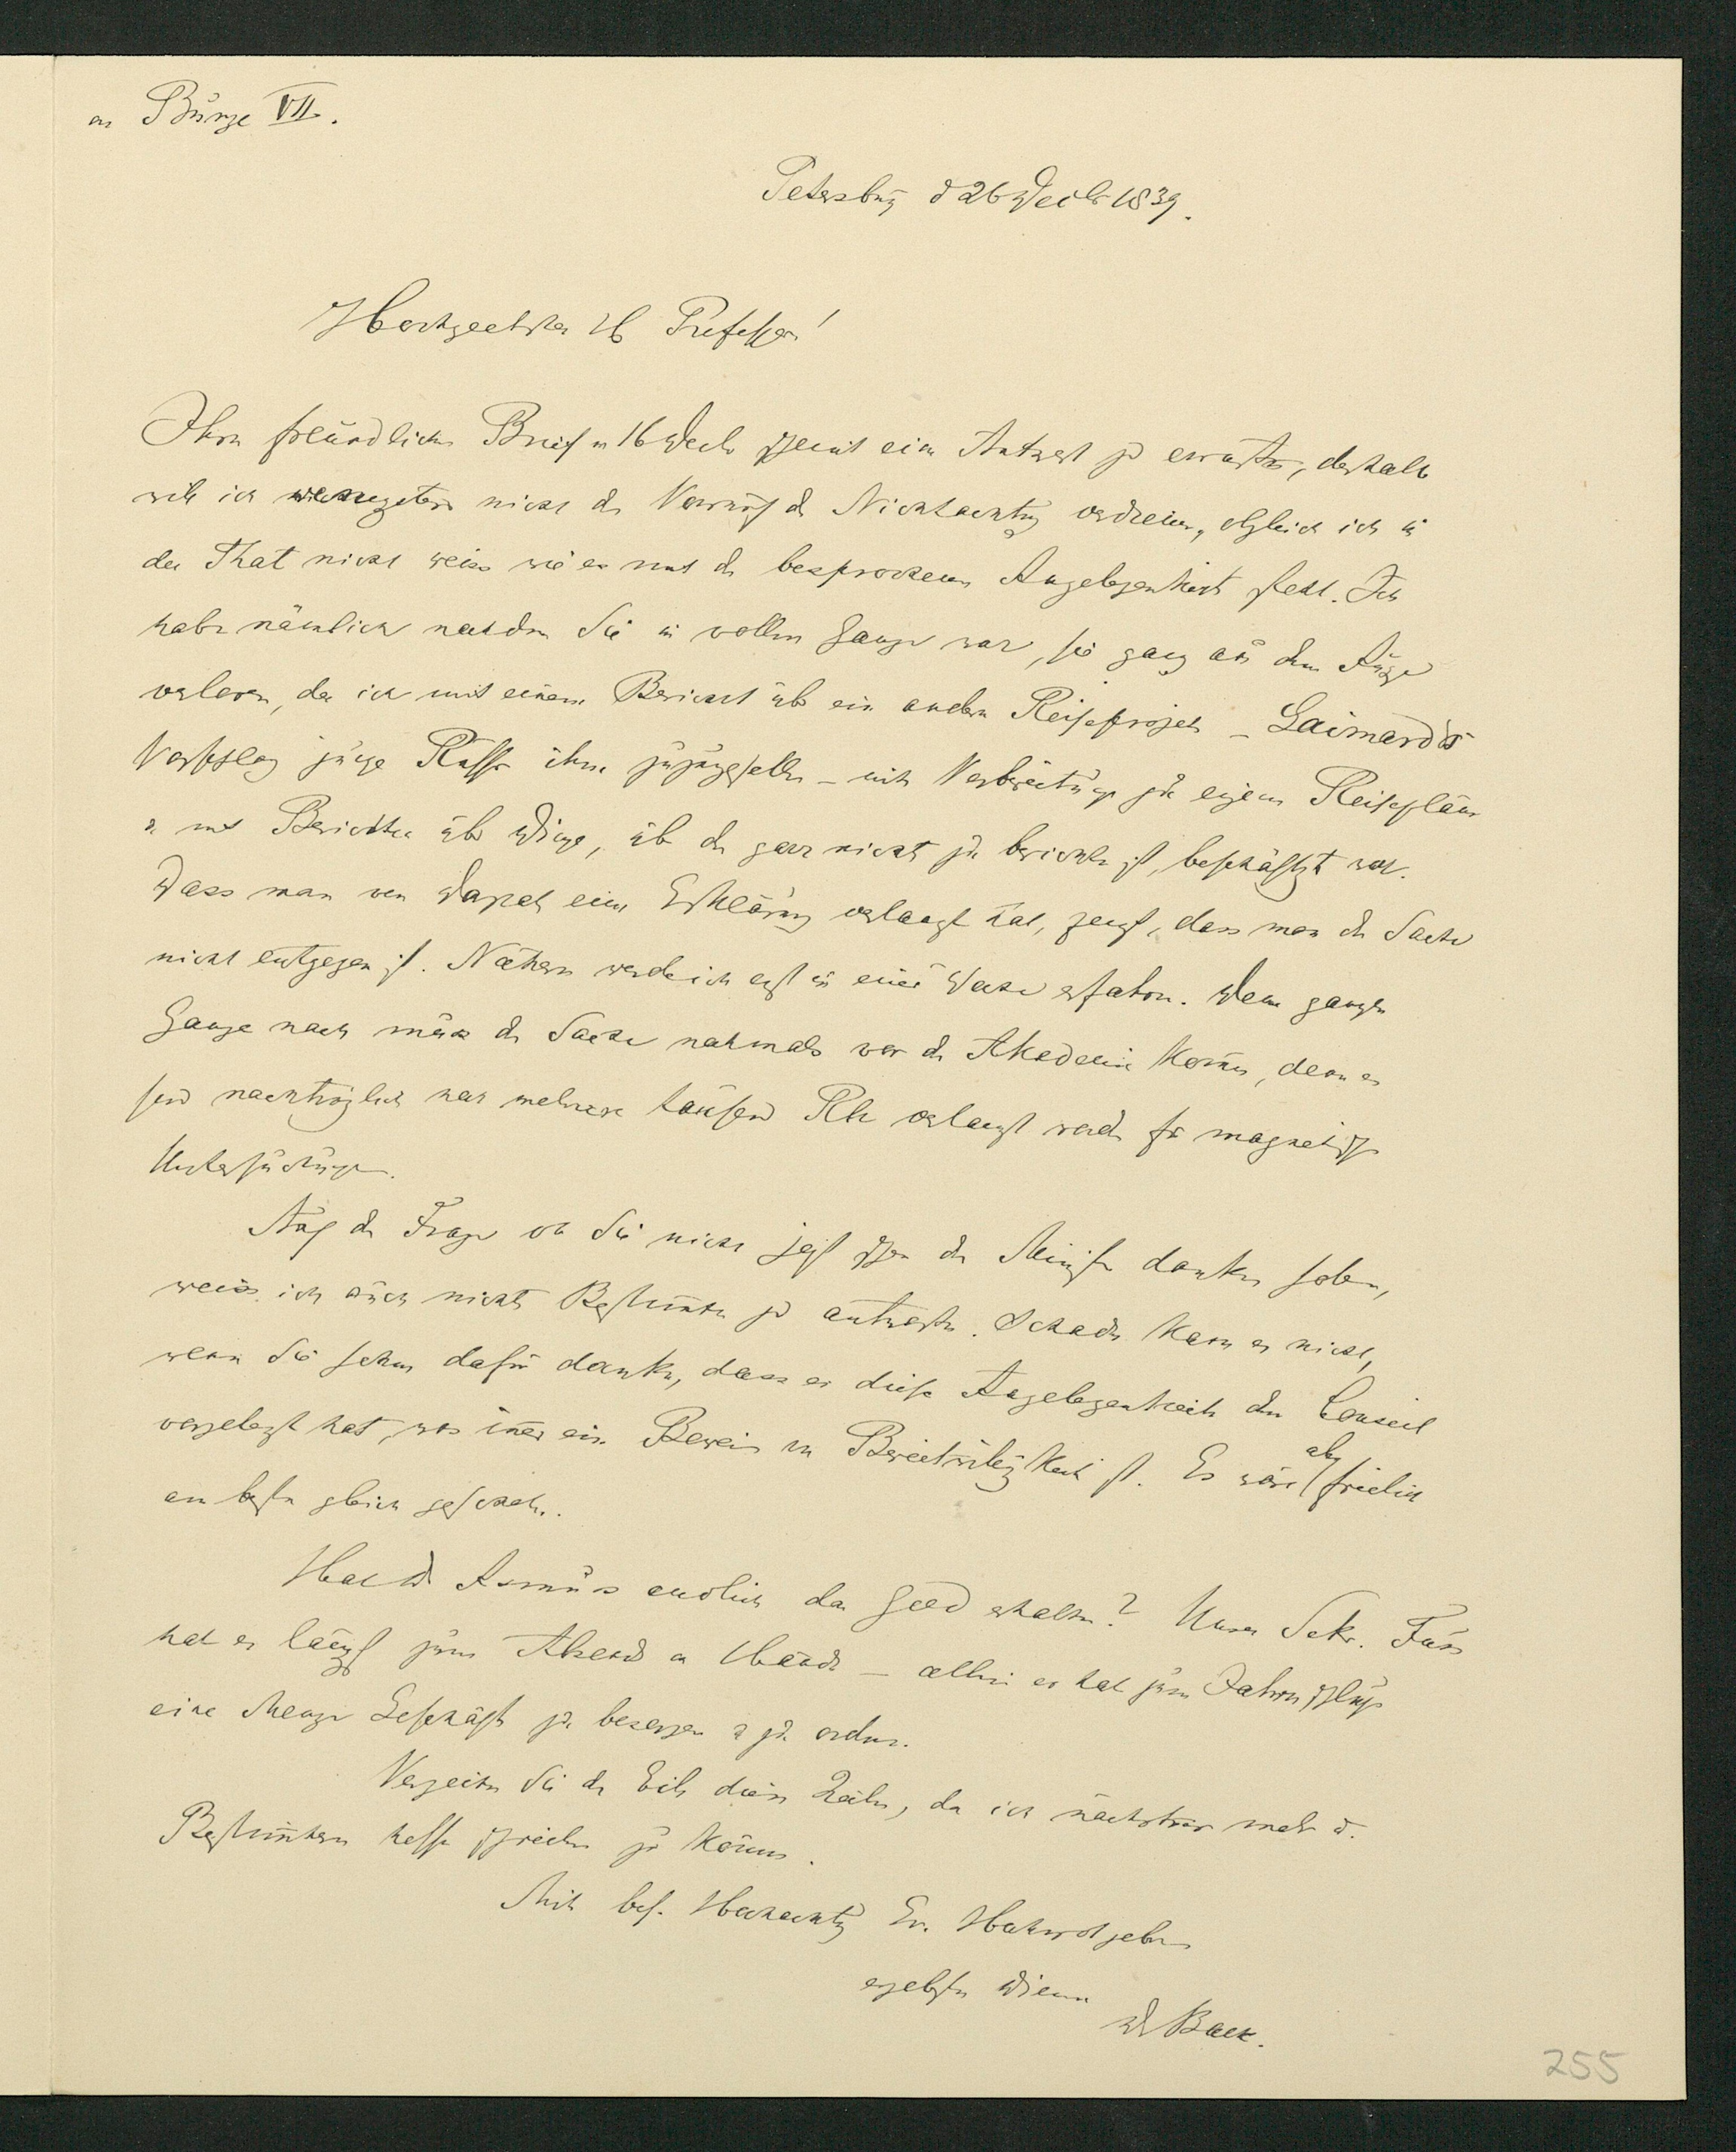 an Bunge VII.
Petersburg d 26 Decbr 1839.
Hochgeehrter H Professor!
Ihr freundlicher Brief v 16 Decbr scheint eine Antwort zu erwarten, deshalb
will ich wenigstens nicht den Vorwurf der Nichtachtung verdienen, obgleich ich in
der That nicht weiss wie es mit der besprochenen Angelegenheit steht. Ich
habe nämlich nachdem Sie in vollem Gange war, sie ganz aus dem Auge
verloren, da ich mit einem Bericht über ein anderes Reiseproject – Gaimard's
Vorschlag junge Russen ihm zuzugesellen – mit Vorbereitungen zu eigenen Reiseplänen
u mit Berichten über Dinge, über die gar nichts zu berichten ist, beschäftigt war.
Dass man von Dorpat eine Erklärung verlangt hat, zeugt, dass man der Sache
nicht entgegen ist. Näheres werde ich erst in einer Woche erfahren. Dem ganzen
Gange nach muss die Sache nochmals vor die Akademie kommen, denn es
sind nachträglich noch mehrere tausend Rbl verlangt worden für magnetische
Untersuchungen.
Auf die Frage ob Sie nicht jetzt schon dem Minister danken sollen,
weiss ich auch nichts Bestimmtes zu antworten. Schaden kann es nicht,
wenn Sie schon dafür danken, dass er diese Angelegenheit dem Conseil
vorgelegt hat, was immer ein Beweis von Bereitwilligkeit ist. Es wäre aber freilich
am besten gleich geschehen.
Hat Dr Asmuss endlich das Geld erhalten? Unser Sekr. Fuss
hat es längst zum Absenden in Händen – allein er hat zum Jahresschlusse
eine Menge Geschäfte zu besorgen u zu ordnen.
Verzeihen Sie die Eile dieser Zeilen, da ich nächstens mehr u.
Bestimmteres hoffe schreiben zu können.
Mit bes. Hochachtung Ew. Hochwohlgeboren
ergebster Diener
Dr Baer.
255